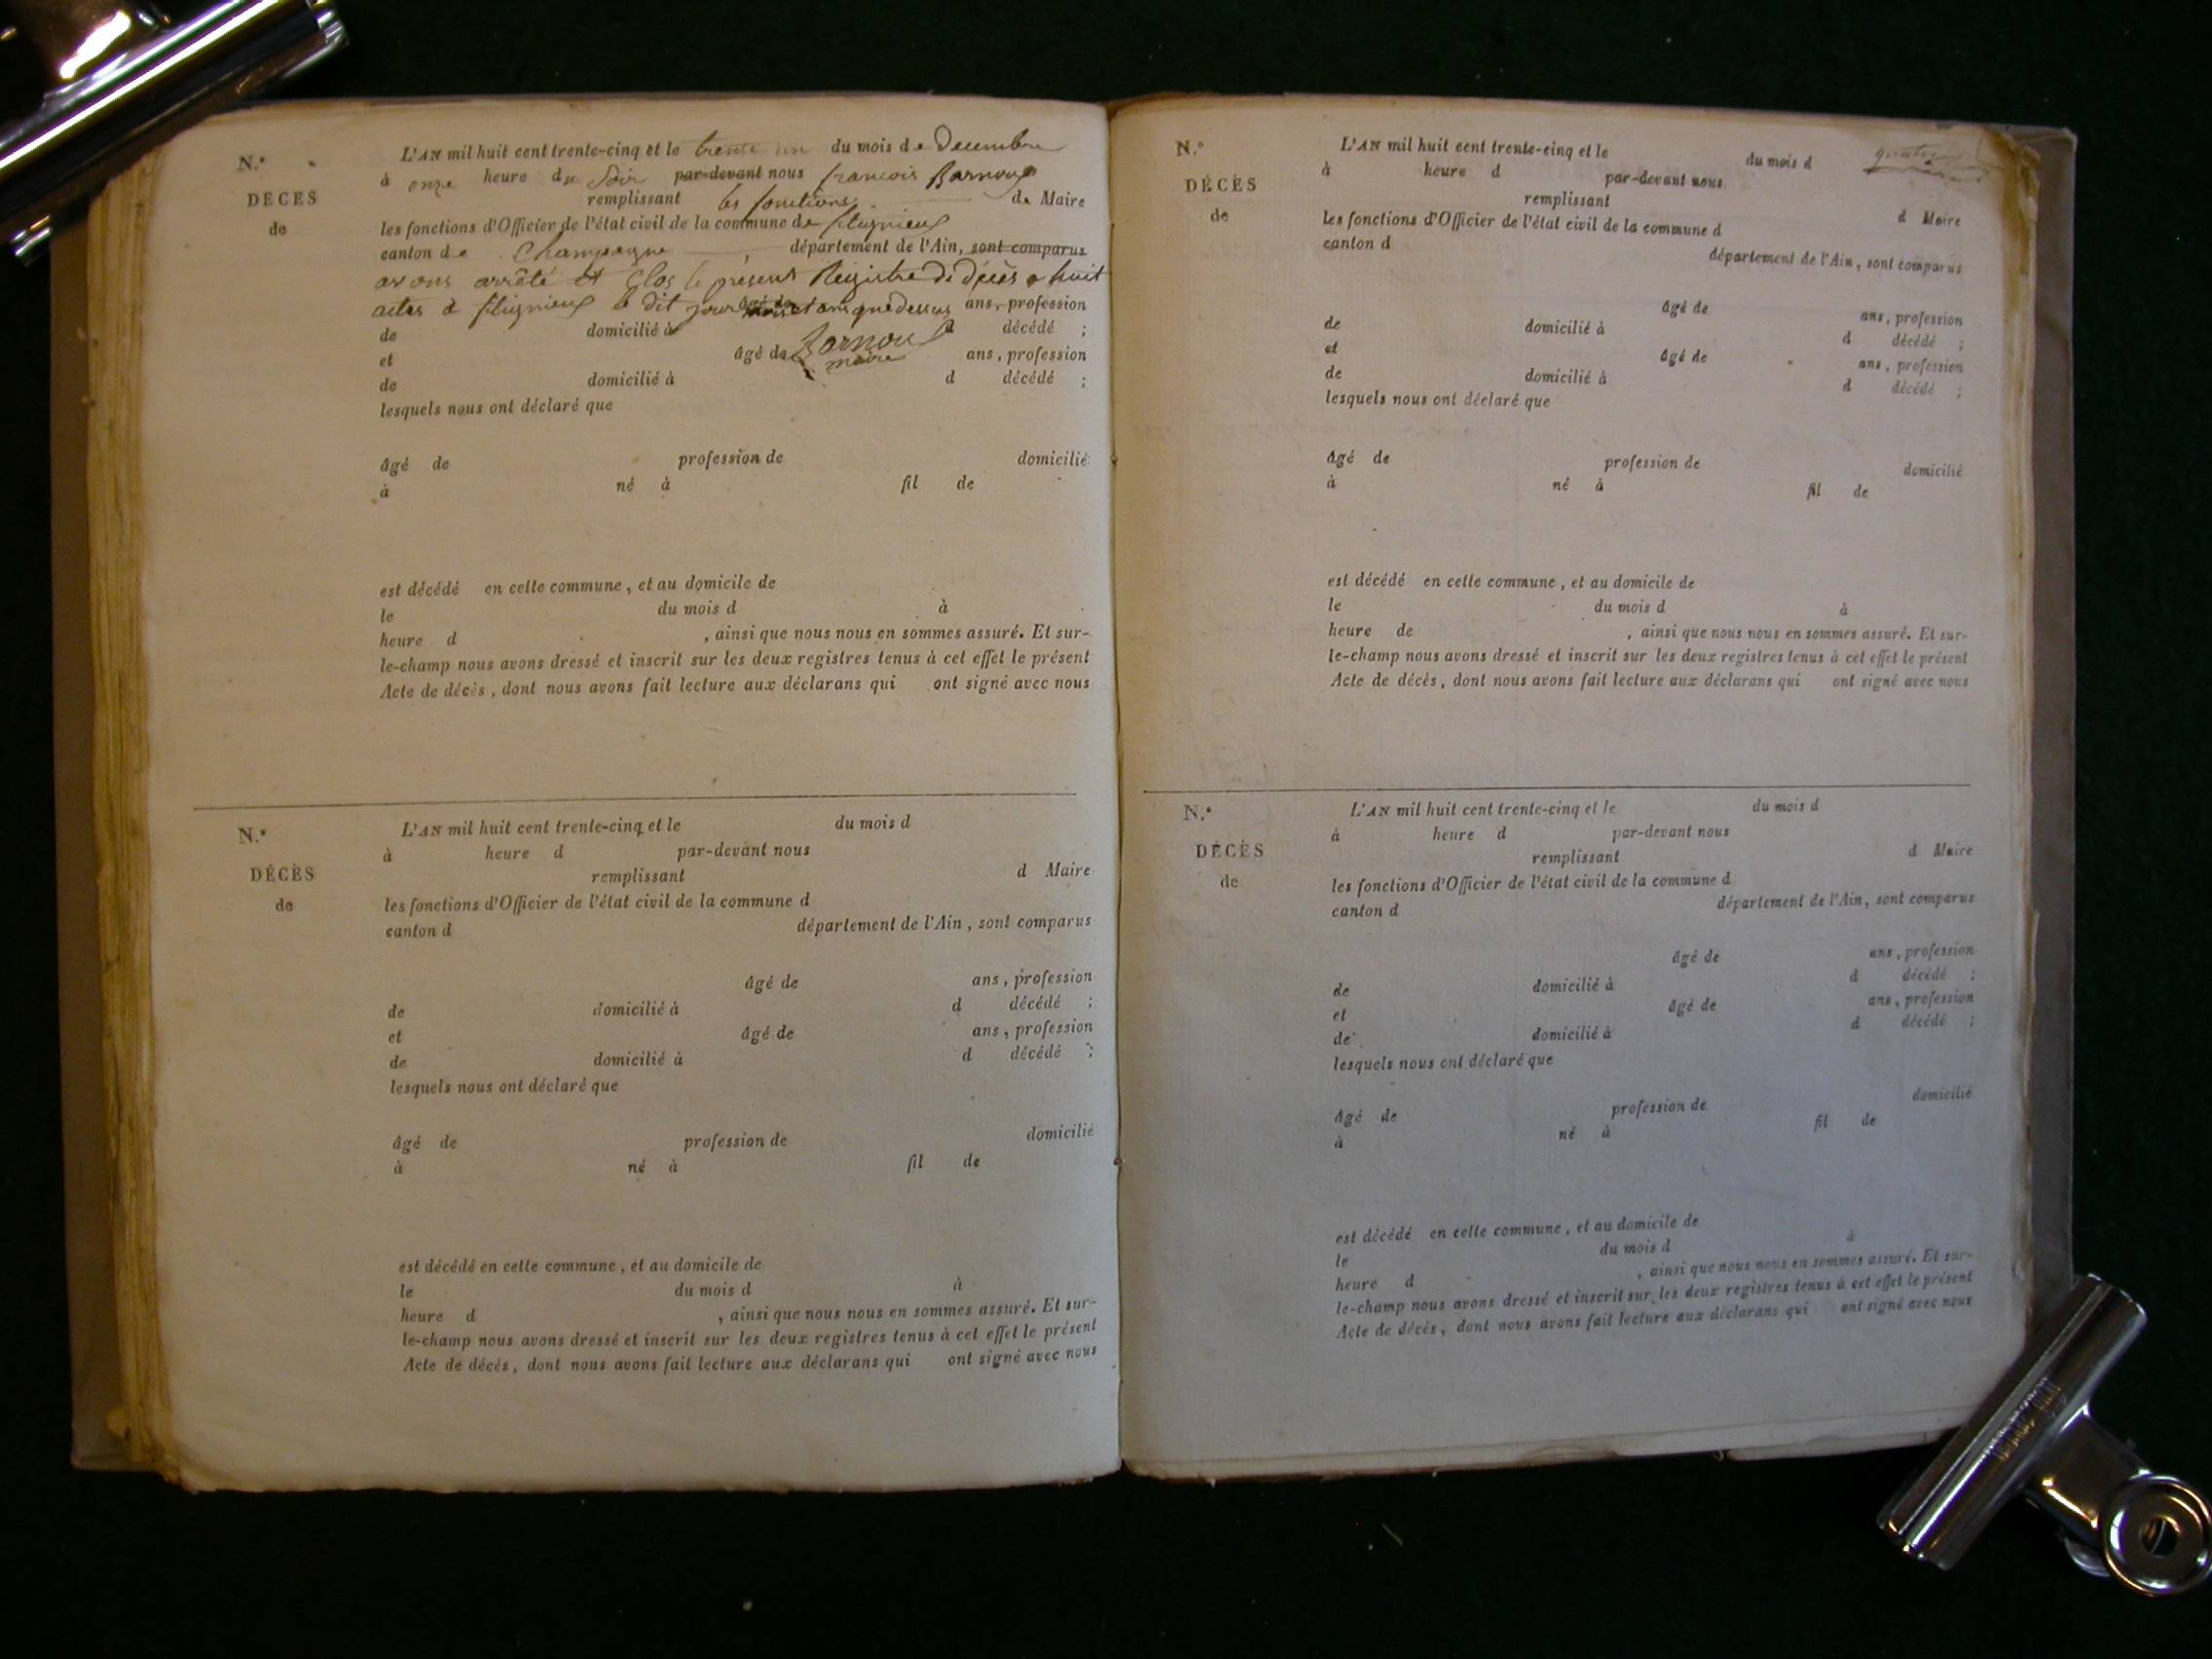 N.º
DÉCÈS
de
L'AN mil huit cent trente-cinq et le trente un du mois de Decembre
à onze heure du Soir par-devant nous francois Barnoux
remplissant les fonctions de Maire
les fonctions d'Officier de l'état civil de la commune de
canton de Champagne, département de l'Ain, sont comparus
avons arrêté et Clos le present Registre de décès a huit
actes a le dit jour et ans que dessus ans, profession
de domicilié à d décédé ;
Barnoux
maire
et âgé de ans, profession
de domicilié à d décédé ;
lesquels nous ont déclaré que
âgé de profession de domicilié
à né à fil de
est décédé en cette commune, et au domicile de
le du mois d à
heure d , ainsi que nous nous en sommes assuré. Et sur-
le-champ nous avons dressé et inscrit sur les deux registres tenus à cet effet le présent
Acte de décès, dont nous avons fait lecture aux déclarans qui ont signé avec nous
N.º
DÉCÈS
de
L'AN mil huit cent trente-cinq et le du mois d
à heure d par-devant nous
remplissant d Maire
les fonctions d'Officier de l'état civil de la commune d
canton d département de l'Ain, sont comparus
âgé de ans, profession
de domicilié à d décédé ;
et âgé de ans, profession
de domicilié à d décédé ;
lesquels nous ont déclaré que
âgé de profession de domicilié
à né à fil de
est décédé en cette commune, et au domicile de
le du mois d à
heure d , ainsi que nous nous en sommes assuré. Et sur-
le-champ nous avons dressé et inscrit sur les deux registres tenus à cet effet le présent
Acte de décès, dont nous avons fait lecture aux déclarans qui ont signé avec nous
N.º
DÉCÈS
de
L'AN mil huit cent trente-cinq et le du mois d
à heure d par-devant nous
remplissant d Maire
les fonctions d'Officier de l'état civil de la commune d
canton d département de l'Ain, sont comparus
âgé de ans, profession
de domicilié à d décédé ;
et âgé de ans, profession
de domicilié à d décédé ;
lesquels nous ont déclaré que
âgé de profession de domicilié
à né à fil de
est décédé en cette commune, et au domicile de
le du mois d à
heure de , ainsi que nous nous en sommes assuré. Et sur-
le-champ nous avons dressé et inscrit sur les deux registres tenus à cet effet le présent
Acte de décès, dont nous avons fait lecture aux déclarans qui ont signé avec nous
N.º
DÉCÈS
de
L'AN mil huit cent trente-cinq et le du mois d
à heure d par-devant nous
remplissant d Maire
les fonctions d'Officier de l'état civil de la commune d
canton d département de l'Ain, sont comparus
âgé de ans, profession
de domicilié à d décédé ;
et âgé de ans, profession
de domicilié à d décédé ;
lesquels nous ont déclaré que
âgé de profession de domicilié
à né à fil de
est décédé en cette commune, et au domicile de
le du mois d à
heure d , ainsi que nous nous en sommes assuré. Et sur-
le-champ nous avons dressé et inscrit sur les deux registres tenus à cet effet le présent
Acte de décès, dont nous avons fait lecture aux déclarans qui ont signé avec nous